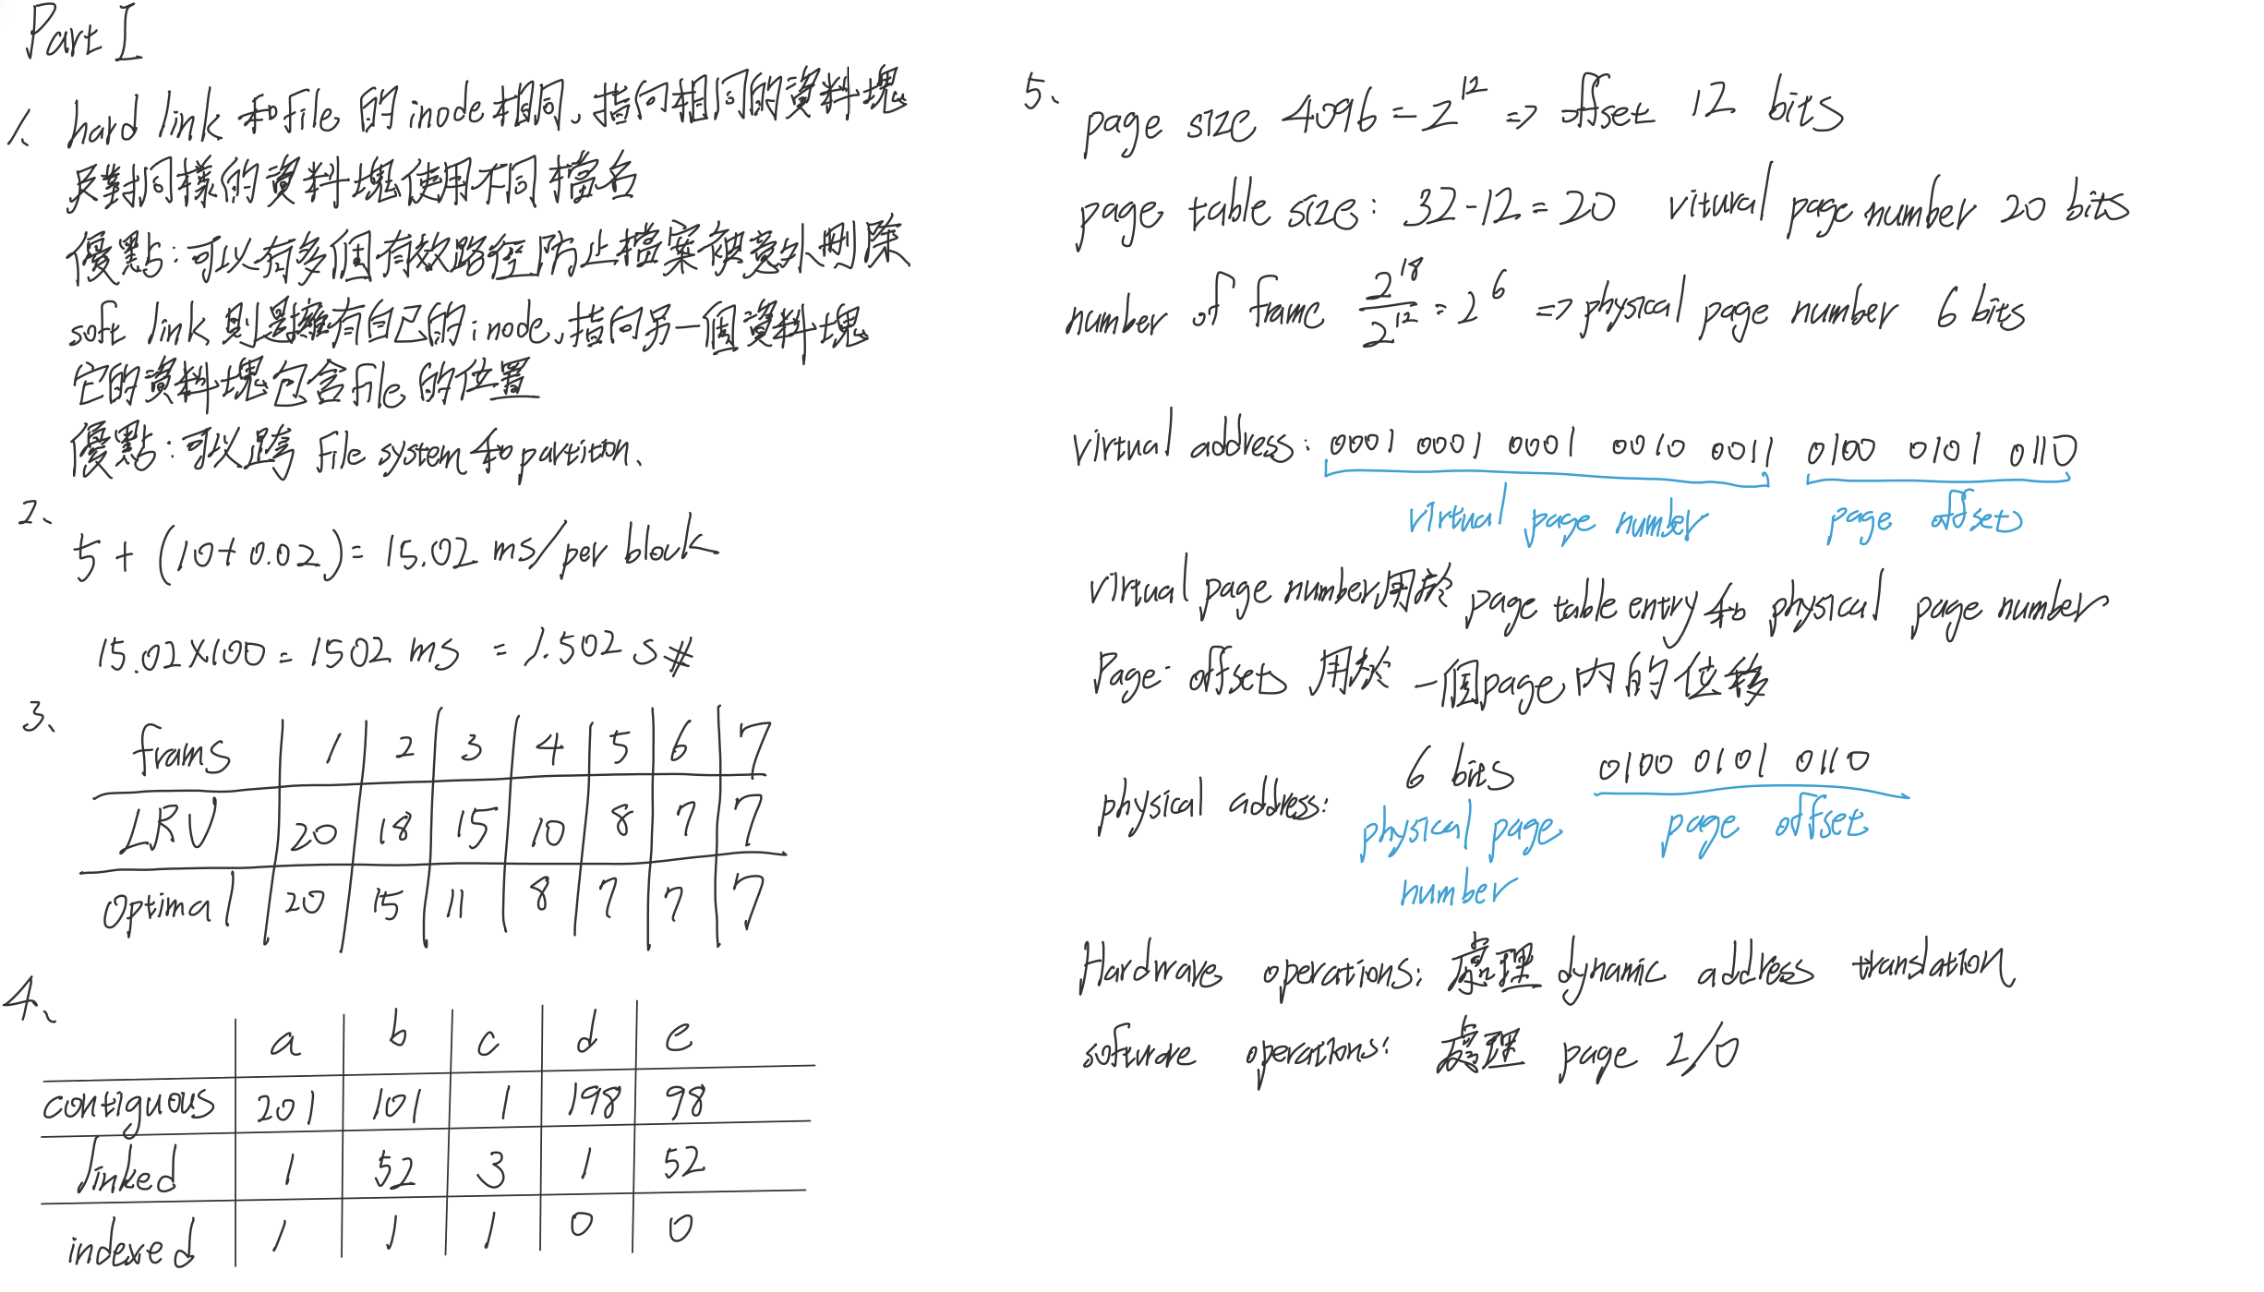 Part I
1、hard link 和file 的 inode 相同,指向相同的資料塊
只對同樣的資料塊使用不同檔名
優點:可以有多個有效路徑防止檔案被意外刪除
soft link 則是擁有自己的inode,指向另一個資料塊
它的資料塊包含file 的位置
優點:可以跨 file system 和 partition、
2、
5 + (10+0.02) = 15.02 ms/per block
15.02×100 = 1502 ms = 1.502 s #
3、
frams 1 2 3 4 5 6 7
LRU 20 18 15 10 8 7 7
optimal 20 15 11 8 7 7 7
4、
a b c d e
contiguous 201 101 1 198 98
linked 1 52 3 1 52
indexed 1 1 1 0 0
5、page size 4096 = 2^12 => offset 12 bits
page table size: 32-12=20 vitural page number 20 bits
number of frame 2^18/2^12 = 2^6 => physical page number 6 bits
virtual address: 0001 0001 0001 0010 0011 0100 0101 0110
virtual page number page offset
virtual page number用於 page table entry 和 physical page number
Page offset 用於 一個page內的位移
physical address: 6 bits 0100 0101 0110
physical page page offset
number
Hardware operations: 處理 dynamic address translation
software operations: 處理 page I/O